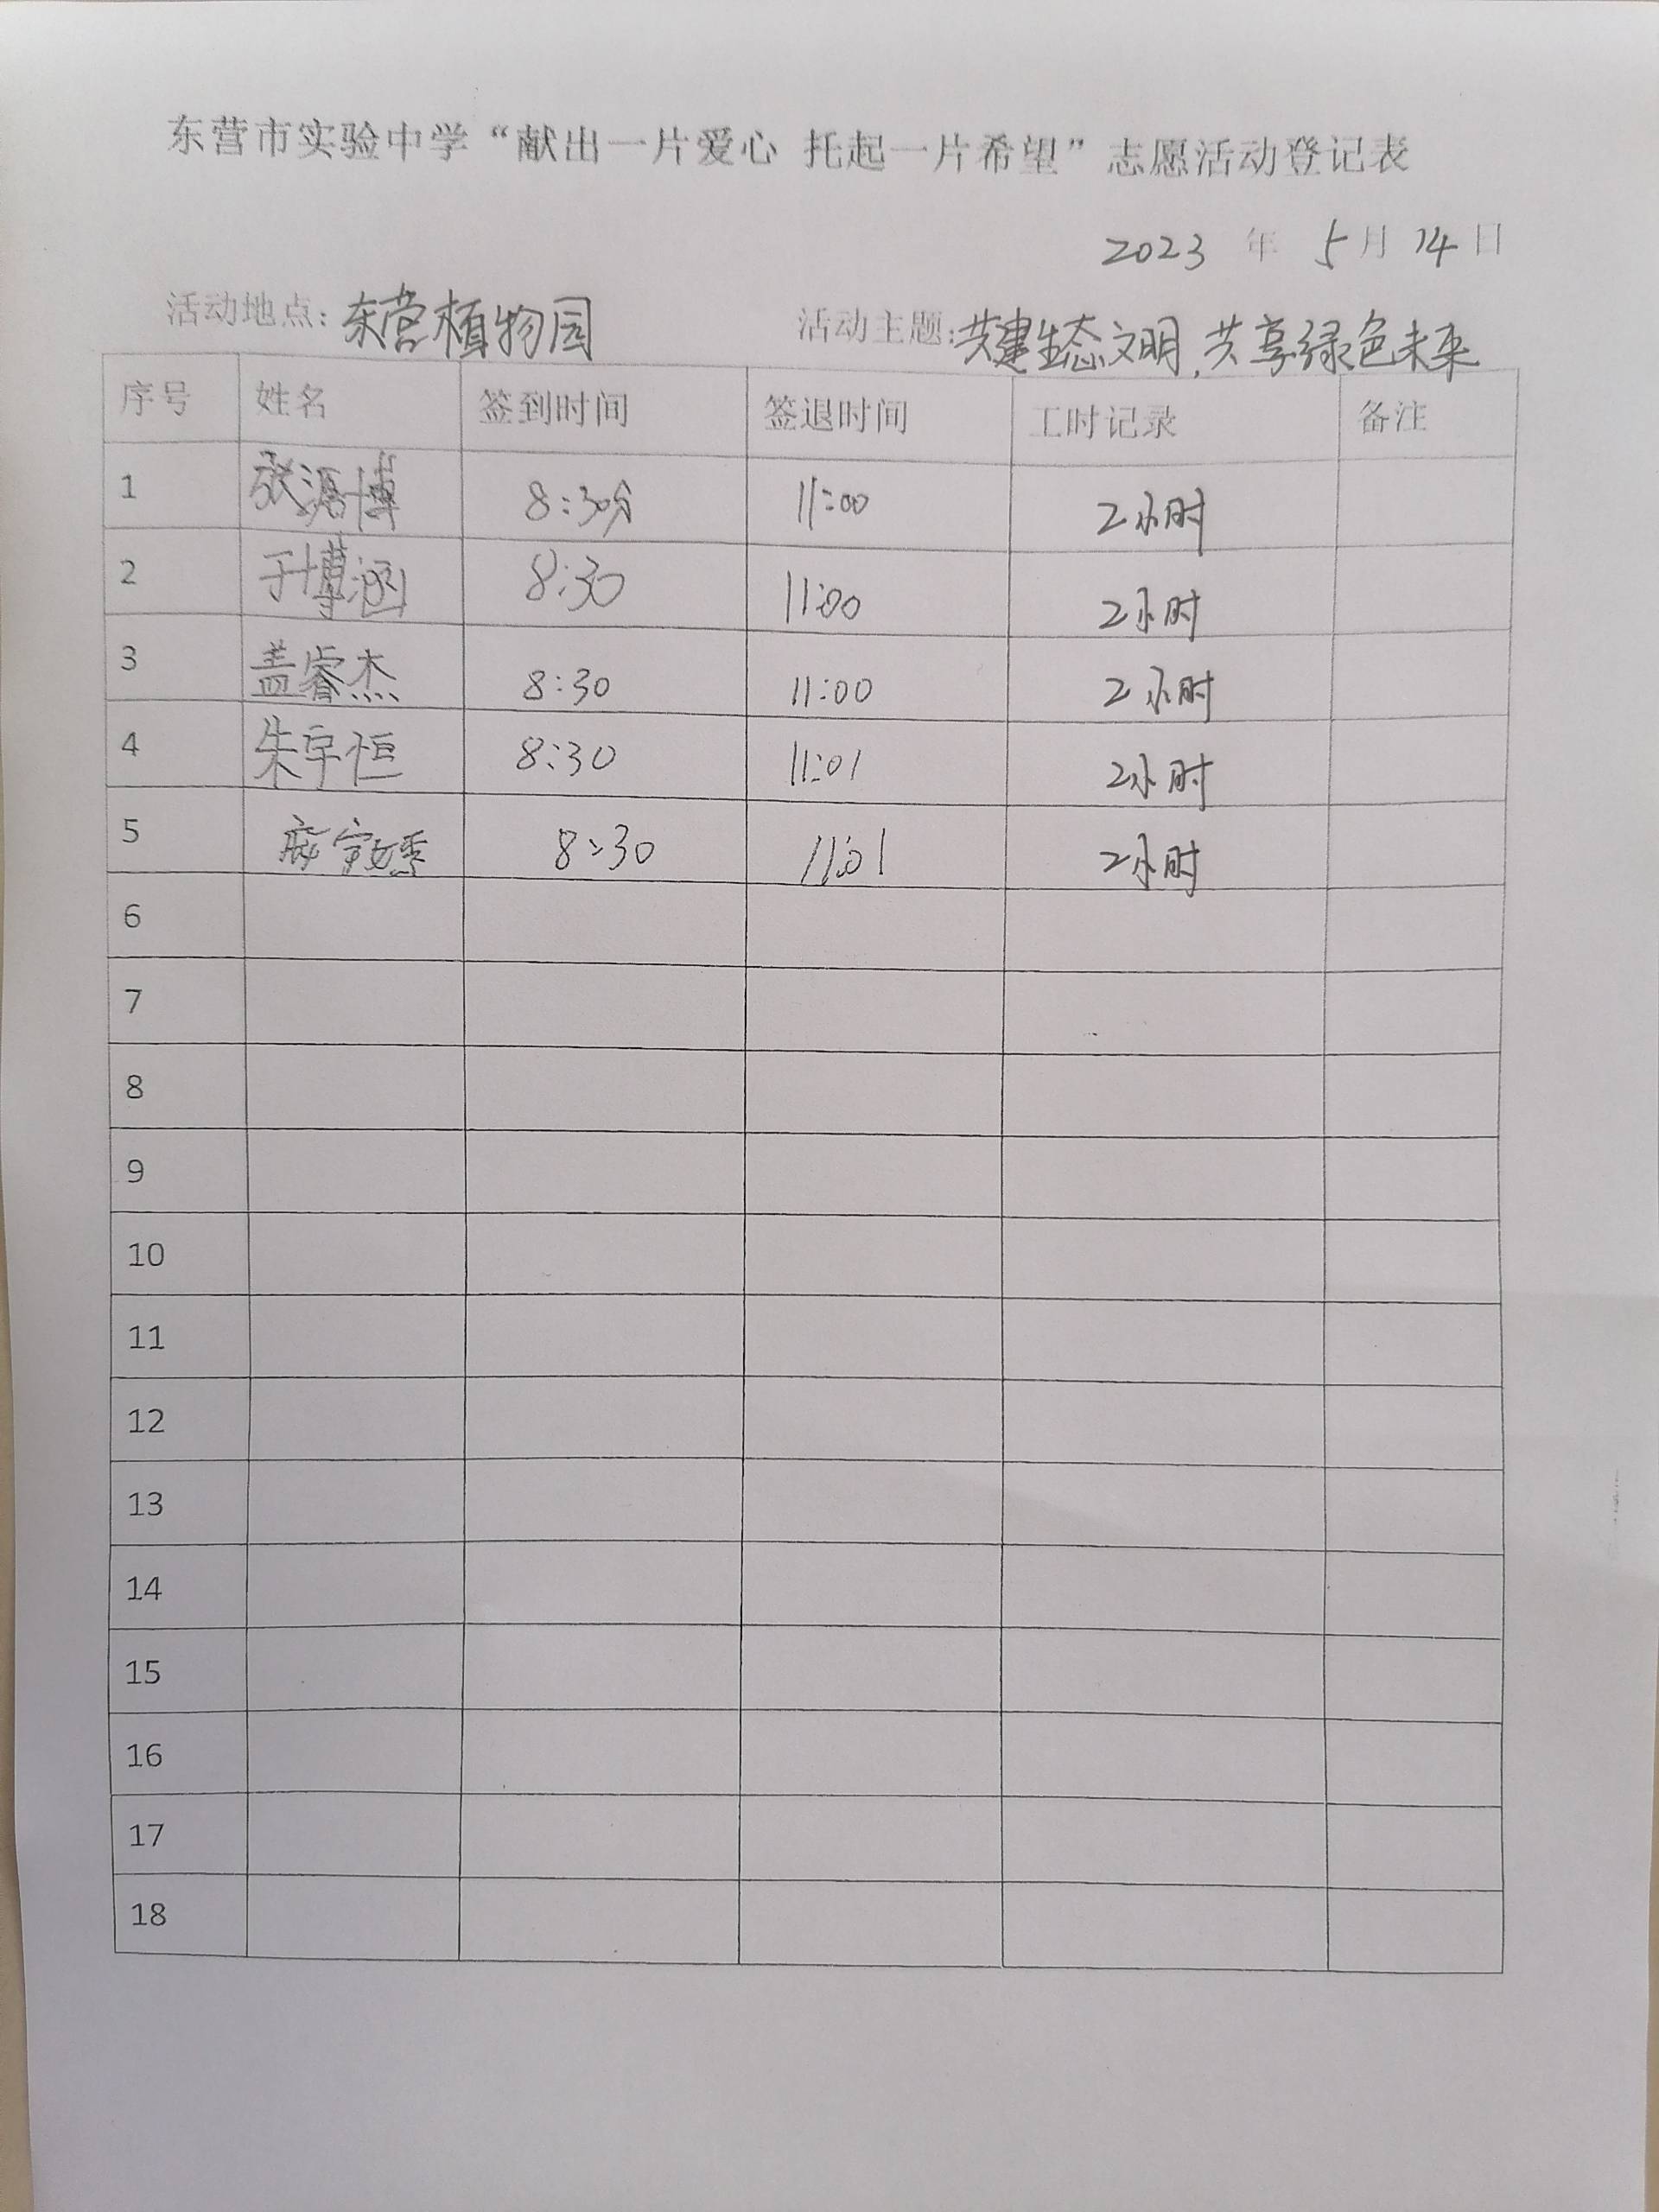 东营市实验中学“献出一片爱心 托起一片希望”志愿活动登记表
2023 年 5月 14日
活动地点：东营植物园 活动主题：共建生态文明，共享绿色未来
序号 姓名 签到时间 签退时间 工时记录 备注
1 张源博 8:30分 11:00 2小时
2 于博涵 8:30 11:00 2小时
3 盖睿杰 8:30 11:00 2小时
4 朱宇恒 8:30 11:01 2小时
5 8:30 11:01 2小时
6
7
8
9
10
11
12
13
14
15
16
17
18